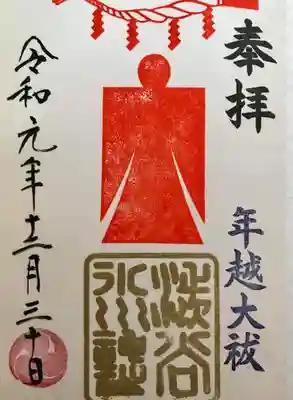 奉拝
年越大祓
澁谷
氷川社
令和元年十二月三十日